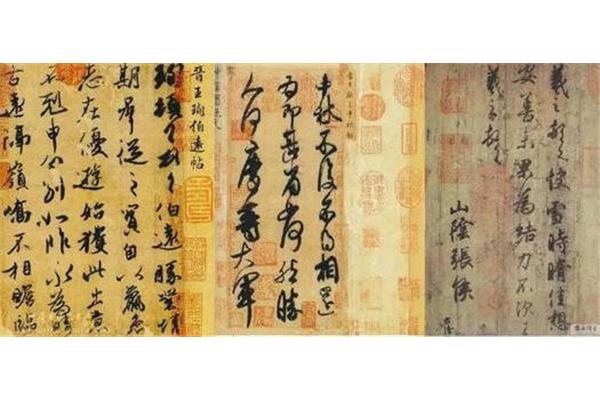 羲之頓首快雪時晴佳想
安善未果為結力不次王
羲之頓首
山陰張侯
中秋不復不得相還
為即甚省如何然勝
人何慶等大軍
晉王珣伯遠帖
珣頓首頓首伯遠勝業情
期群從之寶自以羸患
志在優遊始獲此出意
不剋申分別如昨永為疇
古遠隔嶺嶠不相瞻臨